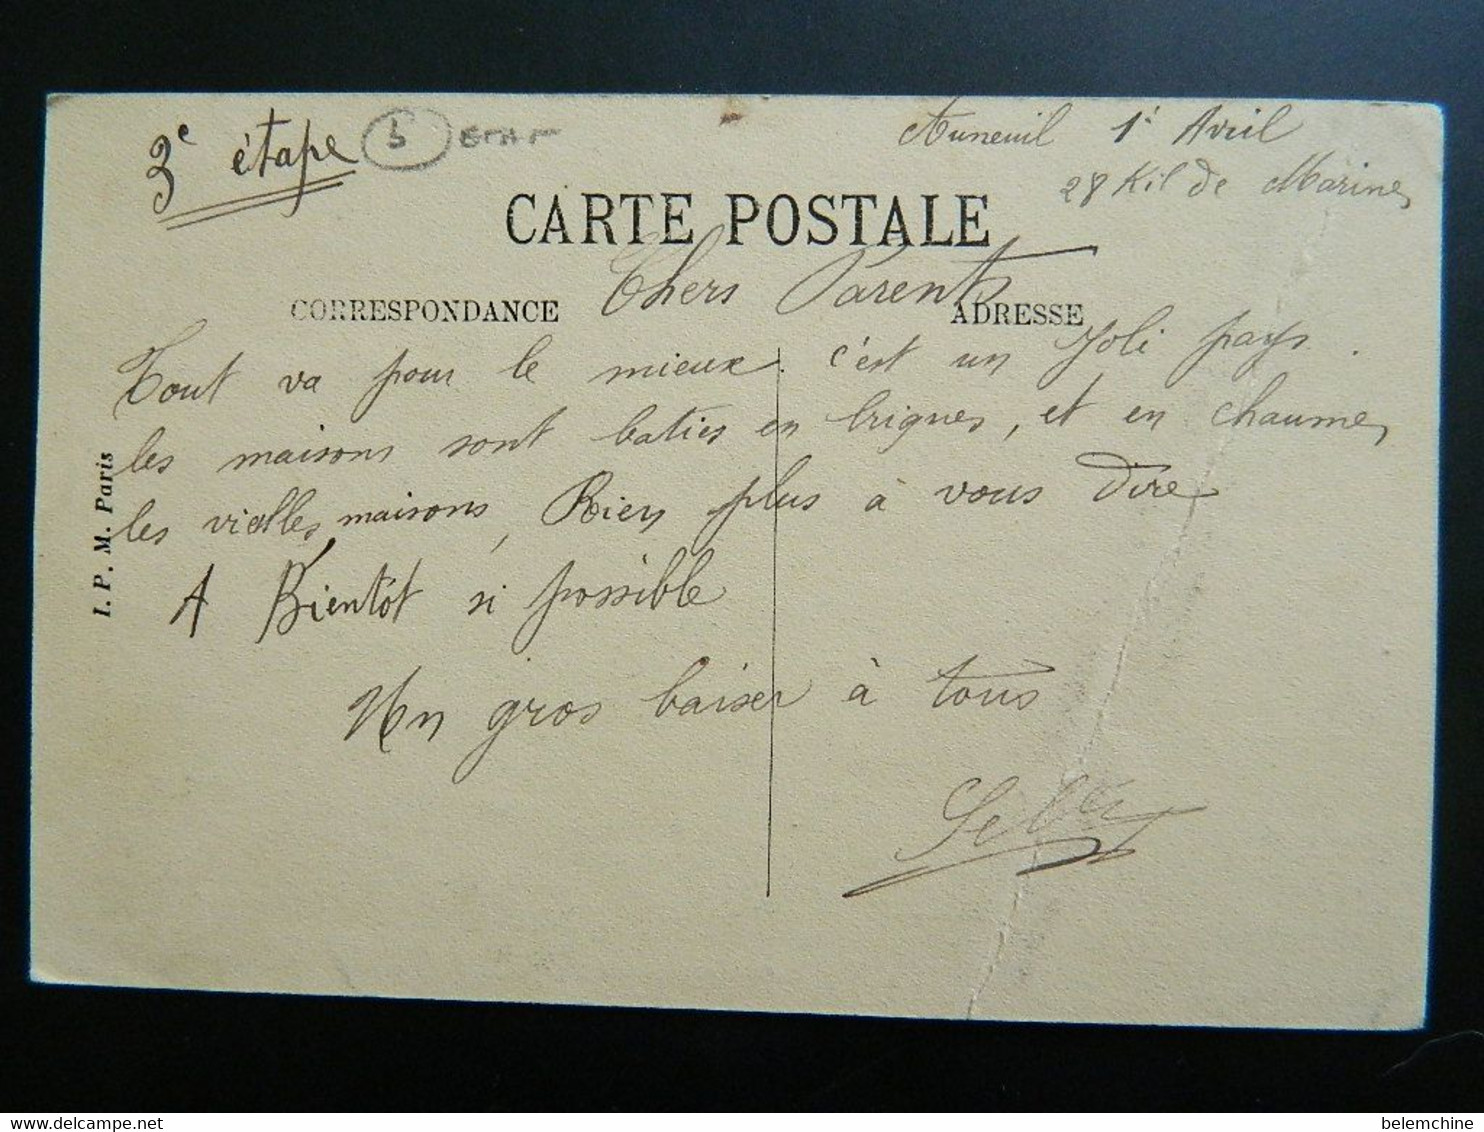 3e étape 5
Auneuil 1er Avril
28 Kil de Marines
CARTE POSTALE
Chers Parents
CORRESPONDANCE ADRESSE
Tout va pour le mieux. c'est un Joli pays.
les maisons sont baties en briques, et en chaumes
les vielles maisons, Rien plus à vous dire
A Bientôt si possible
Un gros baiser à tous
I. P. M. Paris
belemchine